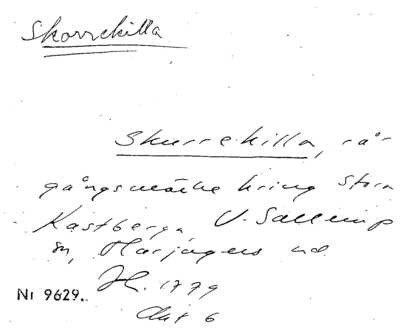 Skorrekilla
Skurrekilla, rå-
gångsmärke kring Stora
Kastberga, V. Sallerup
sn, Harjagers hd
H. 1779
Akt 6
Nr 9629.